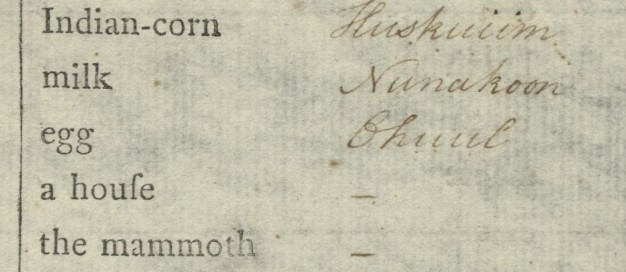 Indian-corn Huskuiim
milk Nunakoon
egg Ohuul
a houſe –
the mammoth –